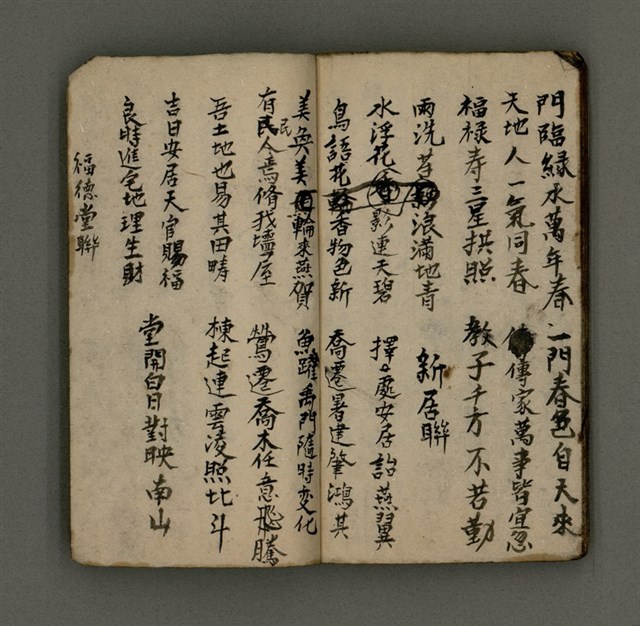 門臨緑水萬年春 一門春色自天來
天地人一氣同春 傳家萬事皆宜忍
福禄寿三星拱照 教子千方不若勤
雨洗苔 浪滿地青 新居聯
水浮花 影連天碧 擇処安居詒燕翼
鳥語花 香物色新 喬遷署建肇鴻其
美奐美 輪來燕賀 魚躍禹門隨時变化
有民民今焉脩我墻屋 鶯遷喬木任意飛騰
吾土地也易其田疇 棟起連雲凌照比斗
吉日安居天官賜福
良時進宅地理生財 堂開白日對映南山
福德堂聯